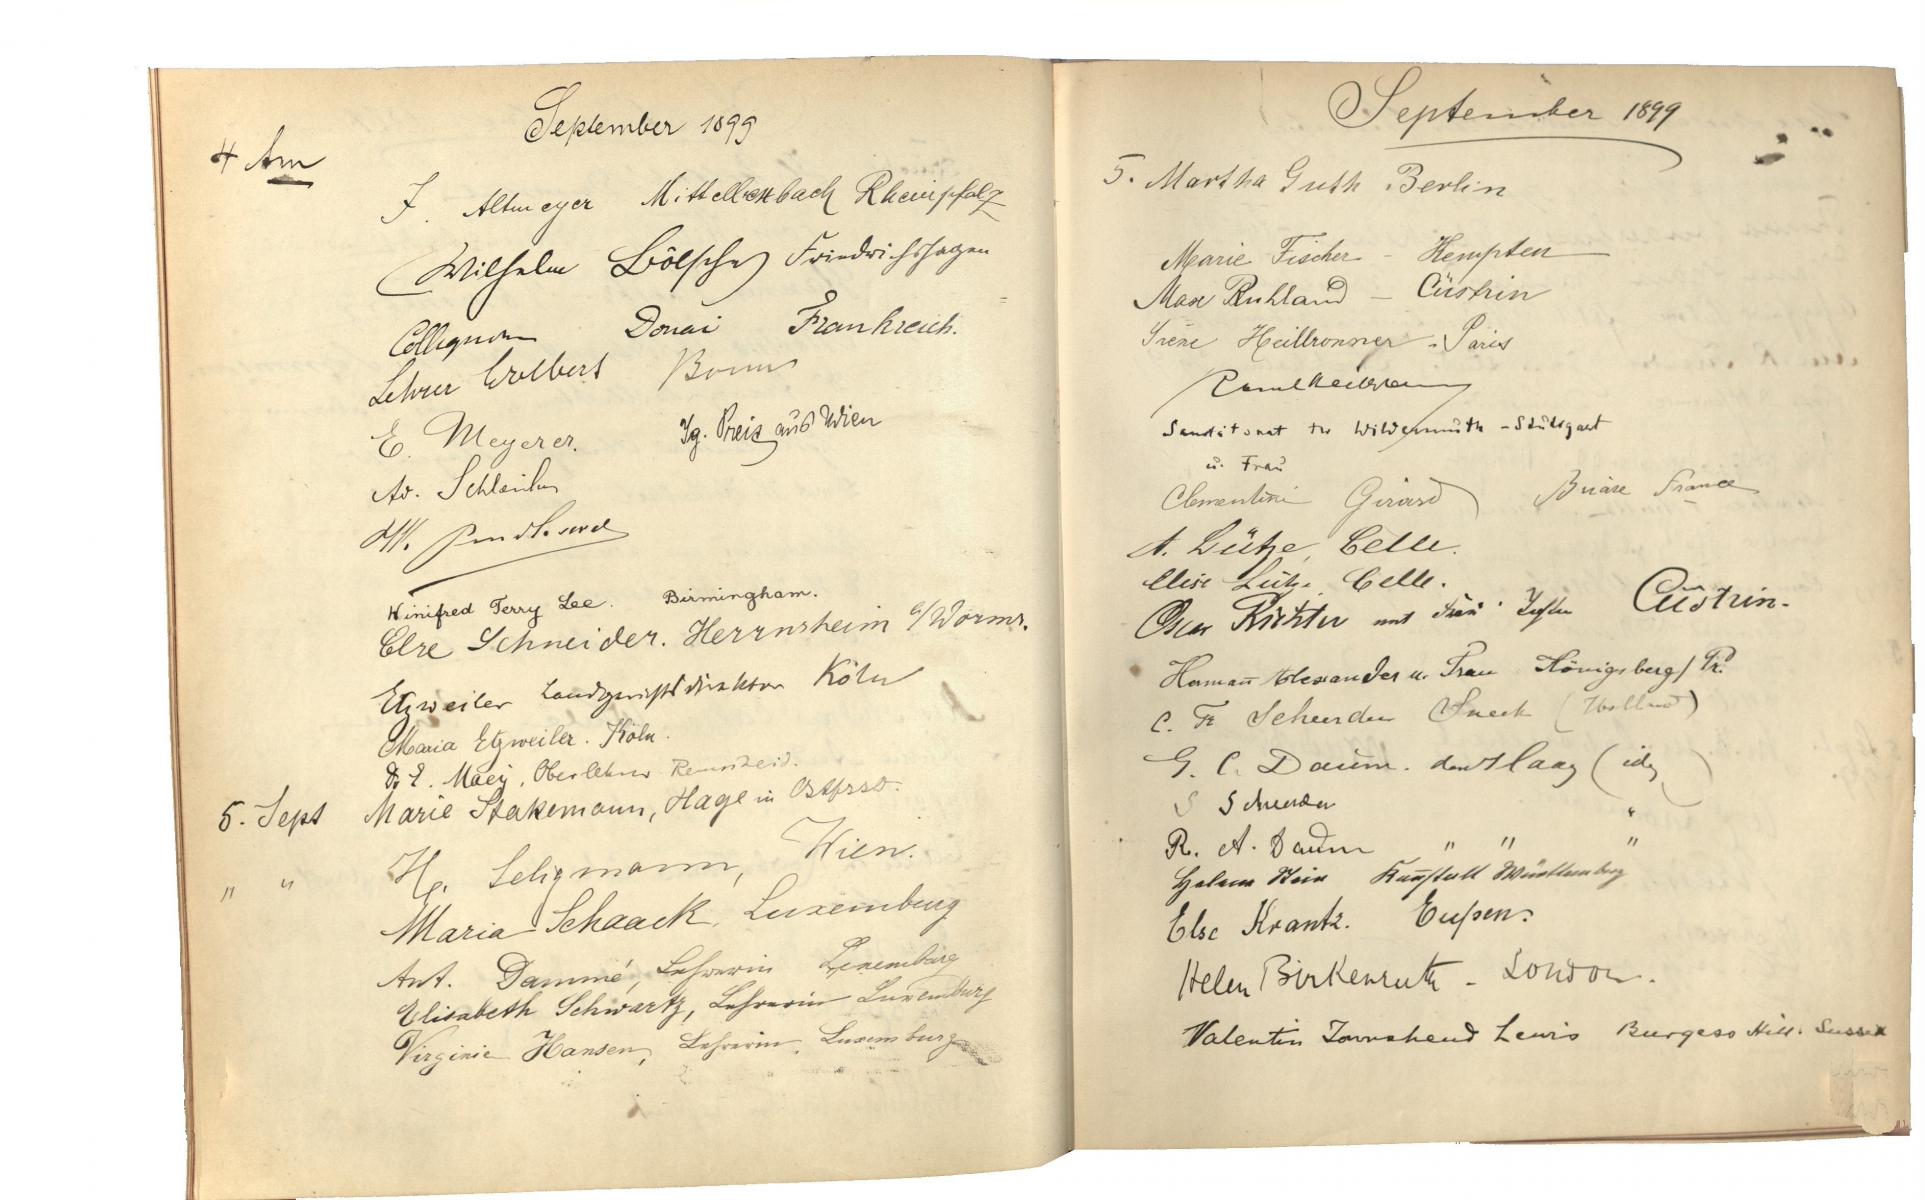 September 1899
4 Am
J. Altmeyer Mittelbexbach Rheinpfalz
Wilhelm Bölsche Friedrichshagen
Collignon Douai Frankreich.
Lehrer Wolbert Bonn
E. Meyerer. Ig. Preis aus Wien
Ad.
Winifred Terry Lee. Birmingham.
Else Schneider. Herrnsheim a/Worms.
Etzweiler Landgerichtsdirektor Köln
Maria Etzweiler. Köln.
Dr E. Maey, Oberlehrer Remscheid.
5. Sept Marie Stakemann, Hage in Ostfrsld.
" " H. Seligmann, Wien.
Maria Schaack, Luxemburg
Ant. Dammé, Lehrerin Luxemburg
Elisabeth Schwartz, Lehrerin Luxemburg
Virginie Hansen, Lehrerin, Luxemburg
September 1899
5. Martha Guth Berlin
Marie Fischer - Kempten
Max Ruhland - Cüstrin
Irène Heilbronner - Paris
Sanitätsrat Dr Wildermuth - Stuttgart
u. Frau
Clementine Girard Briare France
A. Lütze, Celle.
Elise Lütze, Celle.
Oscar Richter mit Frau Cüstrin.
Hermann Alexander u. Frau Königsberg/Pr.
C. Fr Scheerder Sneek (Holland)
G. C. Daum. den Haag (id)
S Scheerder "
R. A. Daum " " "
Helene Kannstatt Württemberg
Else Krantz. Eupen.
Helen Birkenruth - London.
Valentin Townshend Lewis Burgess Hill. Sussex